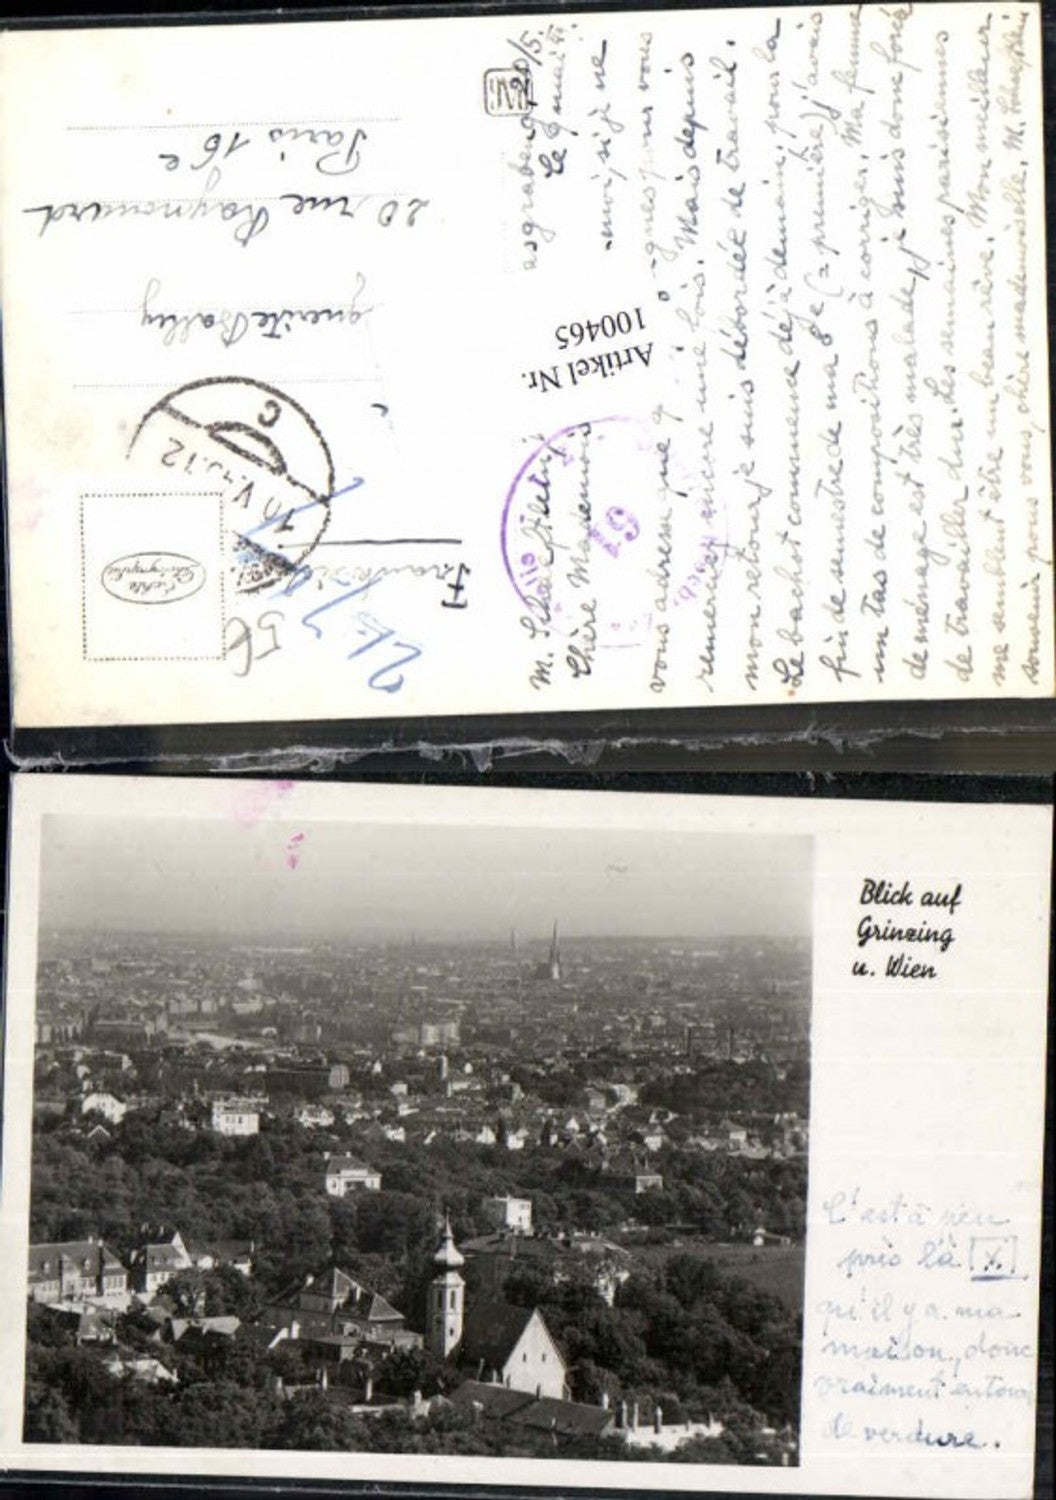 M. Schaefflein, asgrabeng. 20/5.
Le 9 mai
Chère Mademoi moi, si je ne
vous adresse que q -gnes pour vous
remercier encore une fois. Mais depuis
mon retour, je suis débordée de travail.
Le bachot commence déjà demain, pour la
fin de semestre de ma 8e (= première) j'avais
un tas de compositions à corriger. Ma femme
de ménage est très malade, je suis donc forcé
de travailler dur. Les semaines parisiennes
me semblent être un beau rêve. Mon meilleur
souvenir pour vous, chère mademoiselle. M. Schaefflein
Artikel Nr.
100465
Echte
Photographie
10.V.
12
C
guerite Bally
20, rue Raynouard
Paris 16e
Blick auf
Grinzing
u. Wien
C'est à peu
près là [x]
qu'il y a ma
maison, donc
vraiment entouré
de verdure.